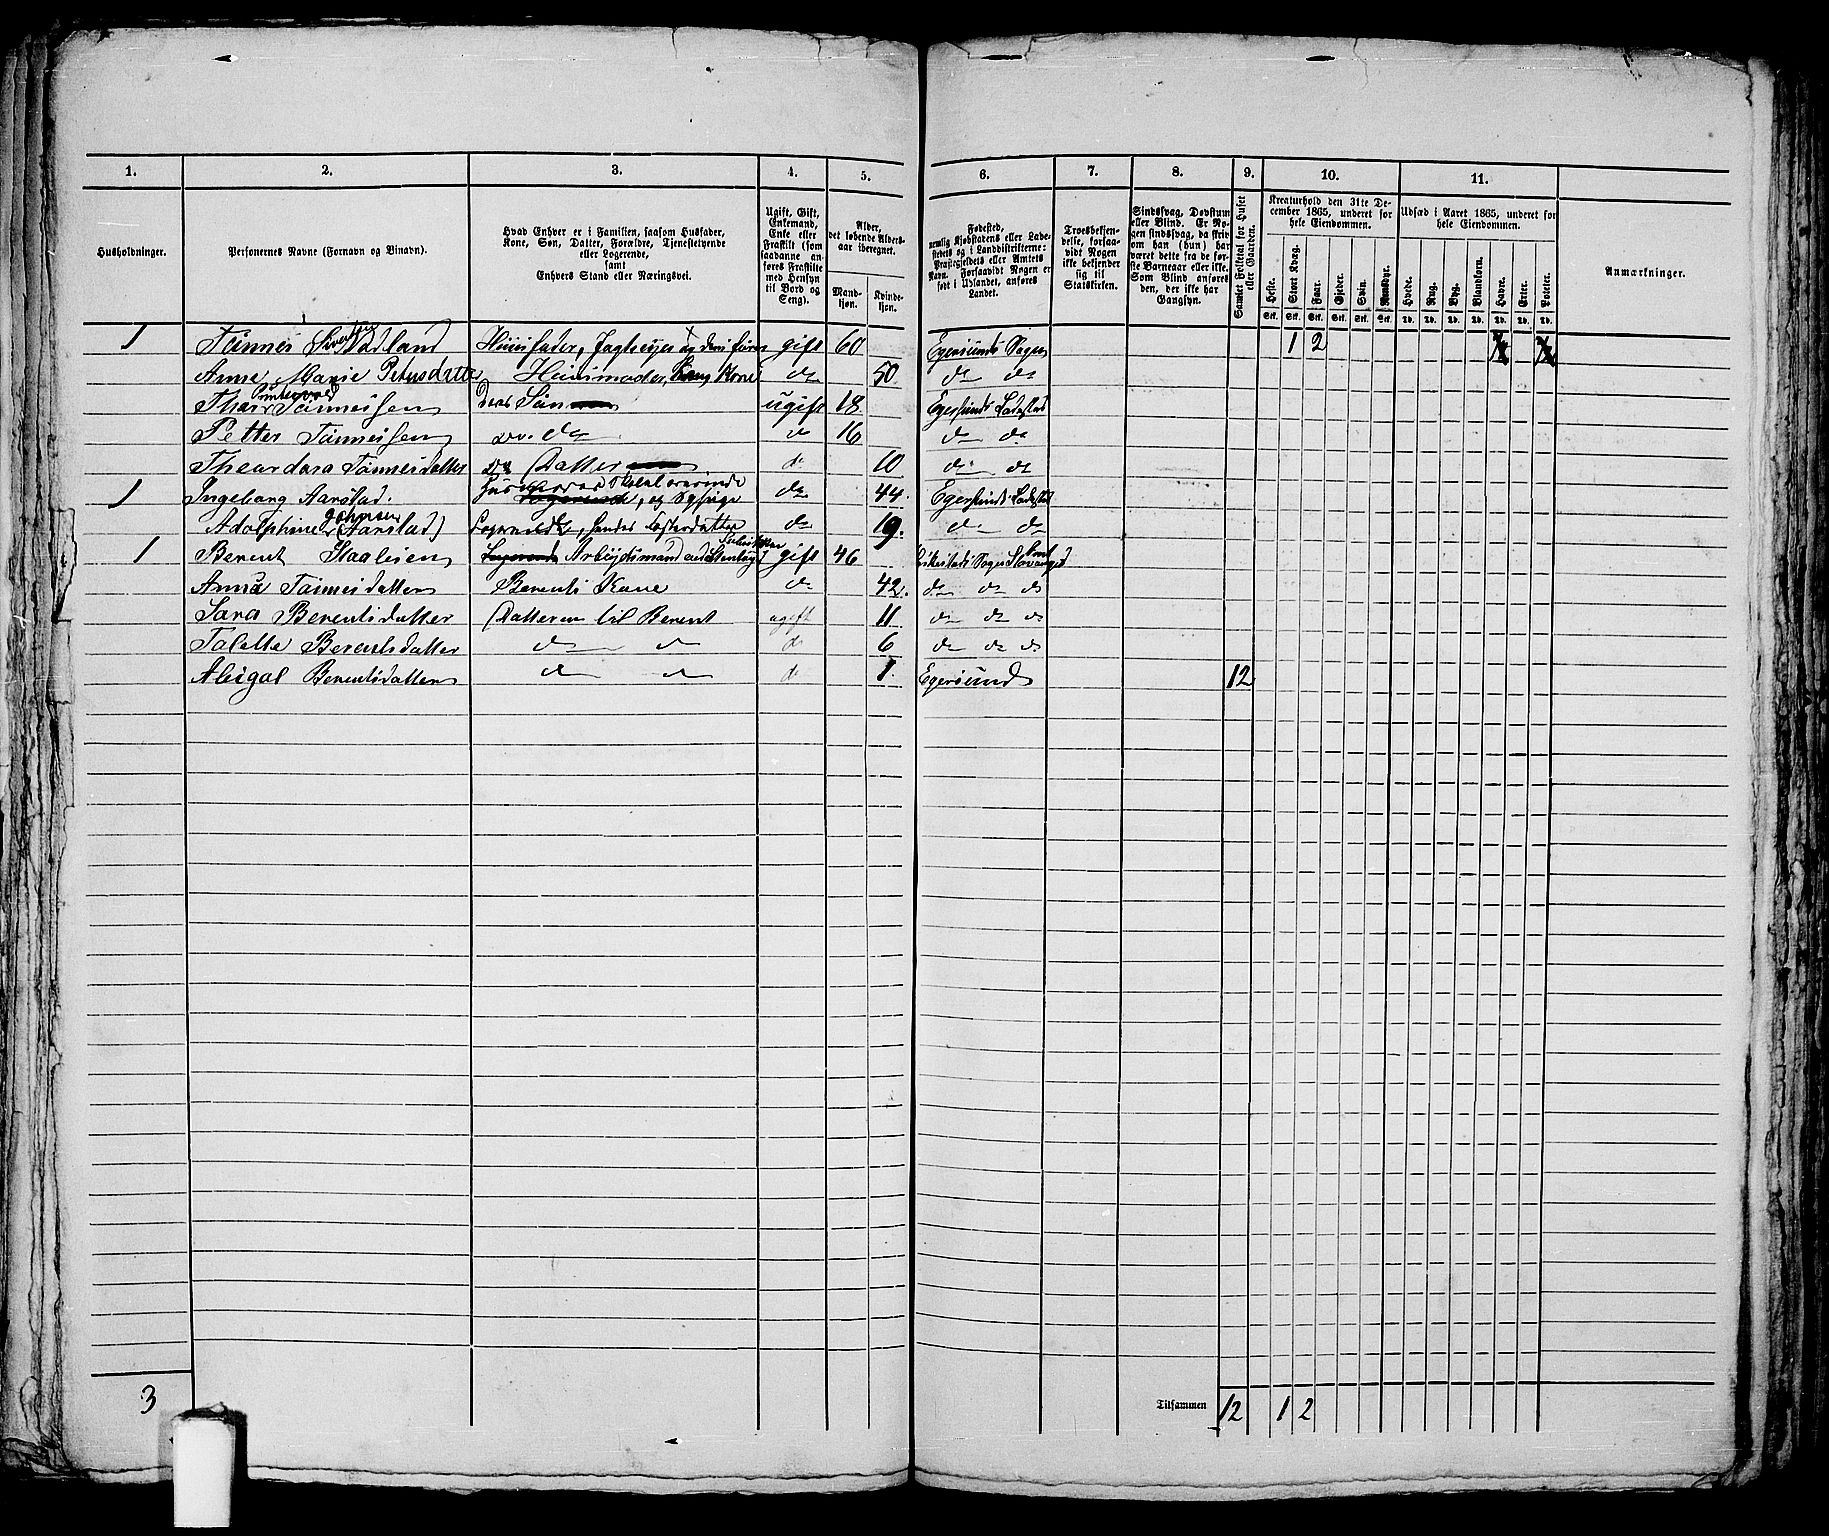 1. 2. 3. 4. 5. 6. 7. 8. 9. 10. 11.
Husholdninger.
Personernes Navne (Fornavn og Tilnavn).
Hvad Enhver er i Familien, saasom Husfader,
Kone, Søn, Datter, Forældre, Tjenestetyende
eller Logerende,
samt
Enhvers Stand eller Næringsvei.
Ugift, Gift,
Enkemand,
Enke eller
Fraskilt (som
saadanne anføres
Fraskilte
med Hensyn
til Bord og
Seng).
Alder,
det løbende Aldersaar
iberegnet.
Mandkjøn.
Kvindekjøn.
Fødested,
nemlig Kjøbstadens eller Ladestedets
og i Landdistrikterne:
Præstegjeldets eller Amtets
Navn. Forsaavidt Nogen er
født i Udlandet, anføres
Landet.
Troesbekjendelse,
forsaavidt
Nogen
ikke bekjender
sig til
Statskirken.
Sindssvag, Døvstum
eller Blind. Er Nogen
sindssvag, da skriv
om han (hun) har
været dette fra de første
Barneaar eller ikke.
Som Blind anføres
den, der ikke har
Gangsyn.
Samlet Folketal for Huset
eller Gaarden.
Kreaturhold den 31te December
1865, underet for
hele Eiendommen.
Heste. Stort Kvæg. Faar. Gjeder. Svin. Rensdyr.
Udsæd i Aaret 1865, underet for
hele Eiendommen.
Hvede. Rug. Byg. Blandkorn. Havre. Erter. Poteter.
Anmærkninger.
1 Tønnes Nadland Huusfader, gift 60 Egersunds Sogn 1 2
Anne Marie Petersdatter Huusmoder, Kone do 50 do do
Thor Tønnesen Deres Søn ugift 18 Egersunds Ladested
Petter Tønnesen do. do do 16 do do
Theardora Tønnesdatter do Datter do 10 do do
1 Ingeborg Aarstad. Logerende, og Sypige do 44 Egersunds Ladested
Adolphine Johnsen (Aarstad) Logerende, hendes Søsterdatter do 19. do do
1 Berent Staalesen Logerende Arbeidsmand gift 46 Sogn Stavanger Amt
Anna Tønnesdatter Berents Kone do 42. do do do
Sara Berentsdatter Datteren til Berent ugift 11 do do do
Talette Berentsdatter do do do 6 do do do
Abigal Berentsdatter do do do 1. Egersund 12
3
Tilsammen 12 1 2